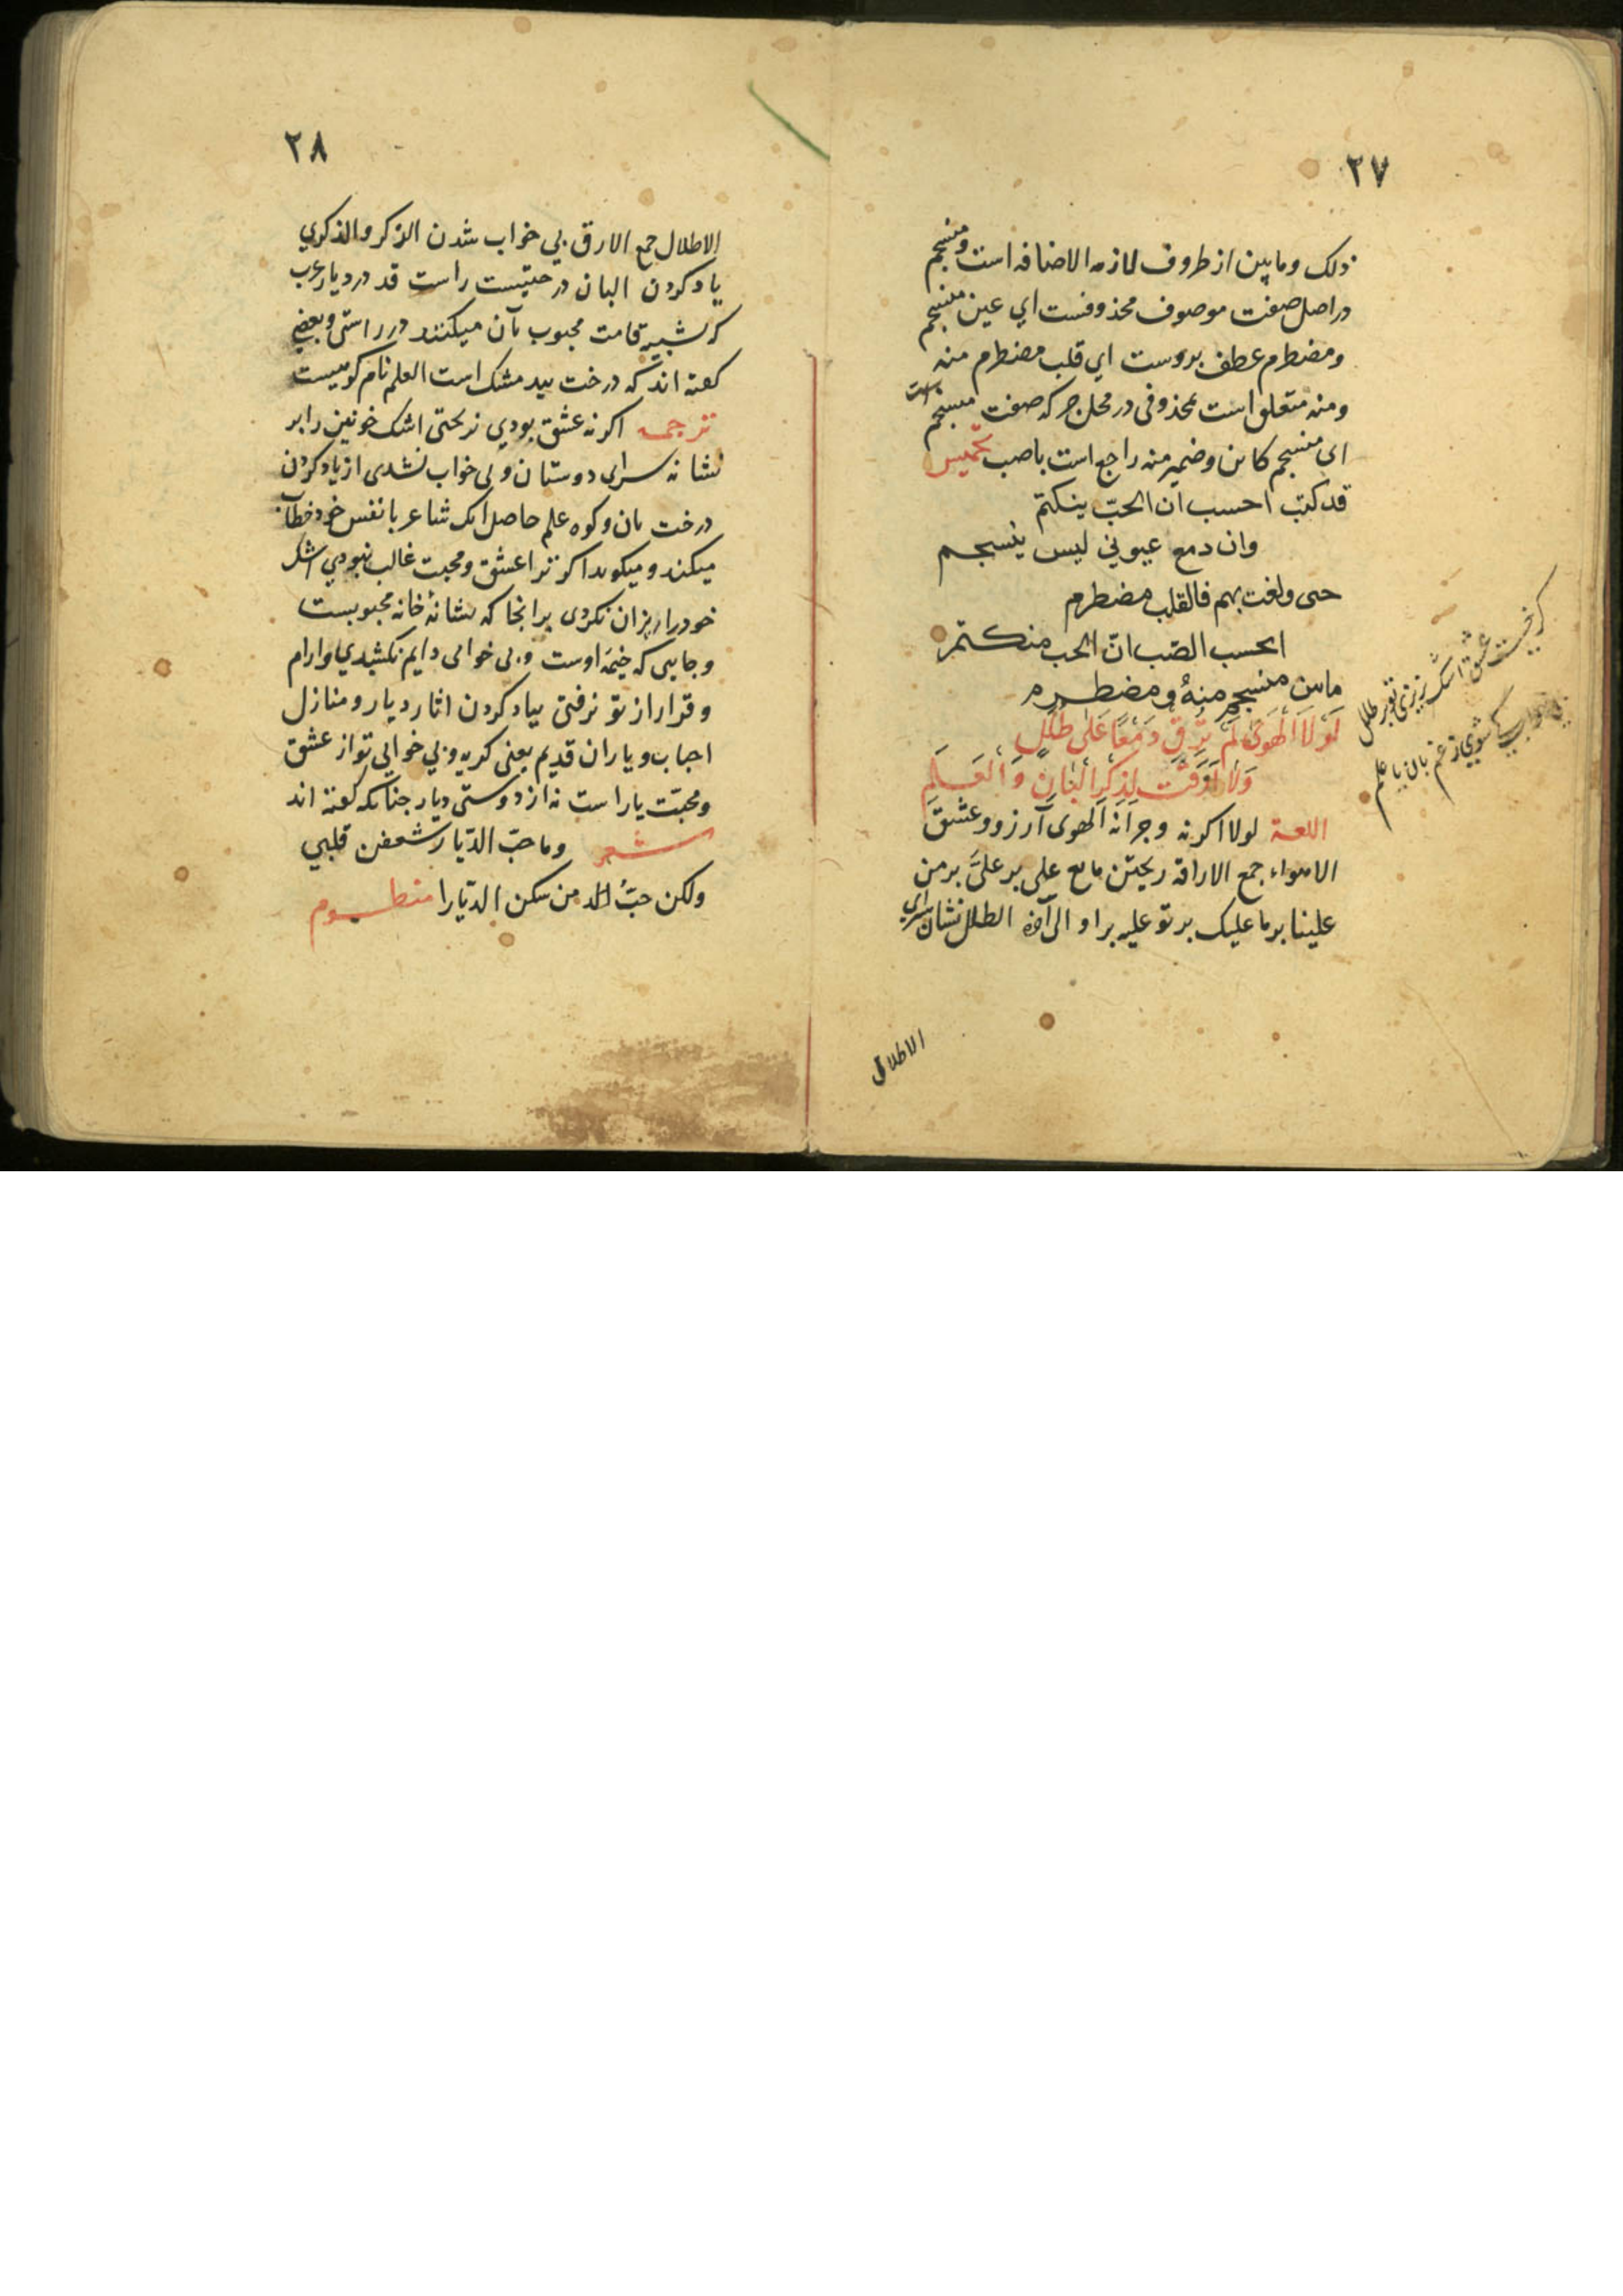 ٢٧
ذلک وما بین از ظروف لازمه الاضافه است ومنسجم
در اصل صفت موصوف محذوفست ای عین منسجم
ومضطرم عطف بروست ای قلب مضطرم منه
ومنه متعلق است بمحذوفی در محل جر که صفت منسجم است
ای منسجم کائن وضمیر منه راجع است باصب تخمیس
قد کنت احسب ان الحبّ ینکتم
وان دمع عیونی لیس ینسجم
حتی ولغت بهم فالقلب مضطرم
ایحسب الصّب انّ الحب منکتم
ما بین منسجم منهُ ومضطرم
لَولَا الْهَوٰی لَمْ تُرِقْ دَمْعًا عَلٰی طَلَلٍ
وَلَا اَرِقْتَ لِذِکْرِ الْبَانِ وَالْعَلَمِ
اللغة لولا اکر نه وجرانه الهوی آرزو وعشق
الاهواء جمع الاراقه ریختن مایع علی بر علیَّ بر من
علینا بر ما علیک بر تو علیه بر او الی آخره الطلل نشان سرای
الاطلال
کر نیست عشق اشک نریزی تو بر طلل
بی خواب کی شوی ز غم بان یا علم
٢٨
الاطلال جمع الارق بی خواب شدن الذکر والذکری
یاد کردن البان درختیست راست قد در دیار عرب
که تشبیه قامت محبوب بآن میکنند در راستی وبعضی
کفته اند که درخت بید مشک است العلم نام کوهیست
ترجمه اکر نه عشق بودی نریختی اشک خونین را بر
نشانه سرای دوستان و بی خواب نشدی از یاد کردن
درخت بان وکوه علم حاصل انک شاعر با نفس خود خطاب
میکند ومیکوید اکر ترا عشق ومحبت غالب نبودی اشک
خود را ریزان نکردی بر انجا که نشانهٔ خانه محبوبست
وجایی که خیمه اوست وبی خوابی دایم نکشیدی وارام
وقرار از تو نرفتی بیاد کردن اثار دیار ومنازل
احباب ویاران قدیم یعنی کریه وبی خوابی تو از عشق
ومحبّت یار است نه از دوستی دیار جنانکه کفته اند
شعر وما حبّ الدّیار شغفن قلبی
ولکن حبُّ من سکن الدّیارا منظوم